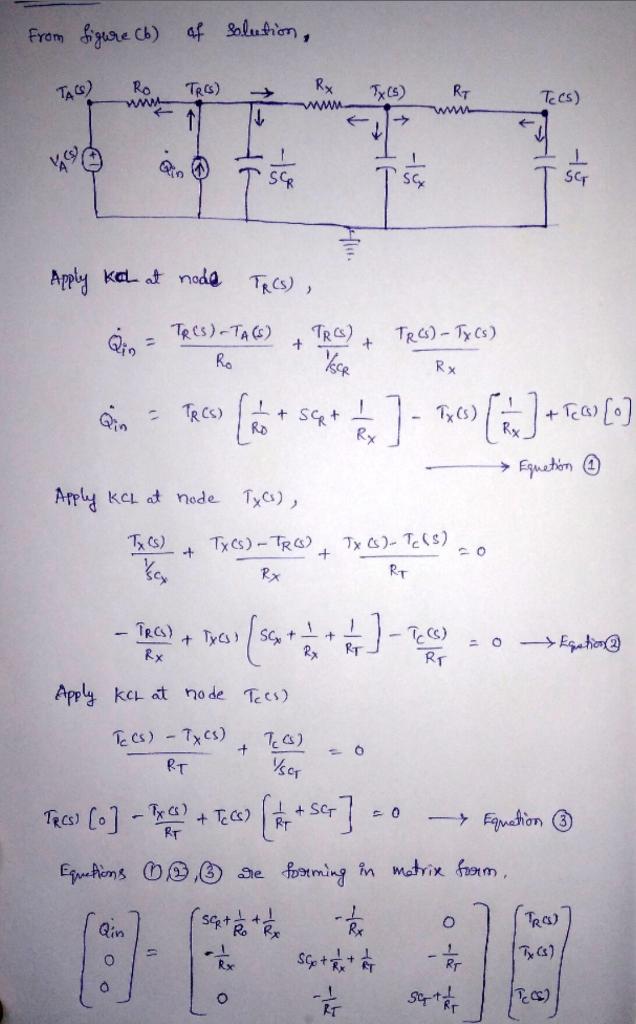 From figure (b) of solution,
TA(s) Ro TR(s) Rx Tx(s) RT Tc(s)
VA(s) + - Q̇in 1/SCR 1/SCx 1/SCT
Apply KCL at node TR(s),
Q̇in = TR(s)-TA(s)/Ro + TR(s)/1/SCR + TR(s)-Tx(s)/Rx
Q̇in = TR(s) [1/Ro + SCR + 1/Rx] - Tx(s) [1/Rx] + Tc(s) [0]
→ Equation ①
Apply KCL at node Tx(s),
Tx(s)/1/SCx + Tx(s)-TR(s)/Rx + Tx(s)-Tc(s)/RT = 0
- TR(s)/Rx + Tx(s) [SCx + 1/Rx + 1/RT] - Tc(s)/RT = 0 → Equation ②
Apply KCL at node Tc(s)
Tc(s) - Tx(s)/RT + Tc(s)/1/SCT = 0
TR(s) [0] - Tx(s)/RT + Tc(s) [1/RT + SCT] = 0 → Equation ③
Equations ①,②,③ are forming in matrix form.
[Q̇in] = [SCR+1/Ro+1/Rx -1/Rx 0] [TR(s)]
[0] [-1/Rx SCx+1/Rx+1/RT -1/RT] [Tx(s)]
[0] [0 -1/RT SCT+1/RT] [Tc(s)]